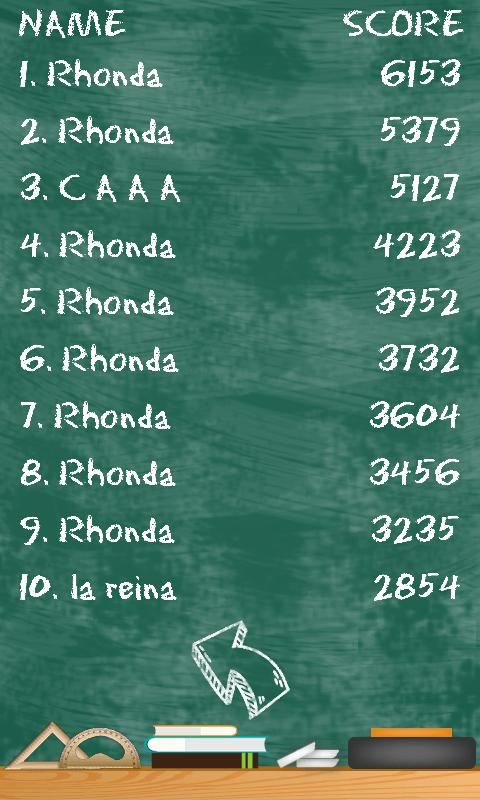 NAME SCORE
1. Rhonda 6153
2. Rhonda 5379
3. C A A A 5127
4. Rhonda 4223
5. Rhonda 3952
6. Rhonda 3732
7. Rhonda 3604
8. Rhonda 3456
9. Rhonda 3235
10. la reina 2854